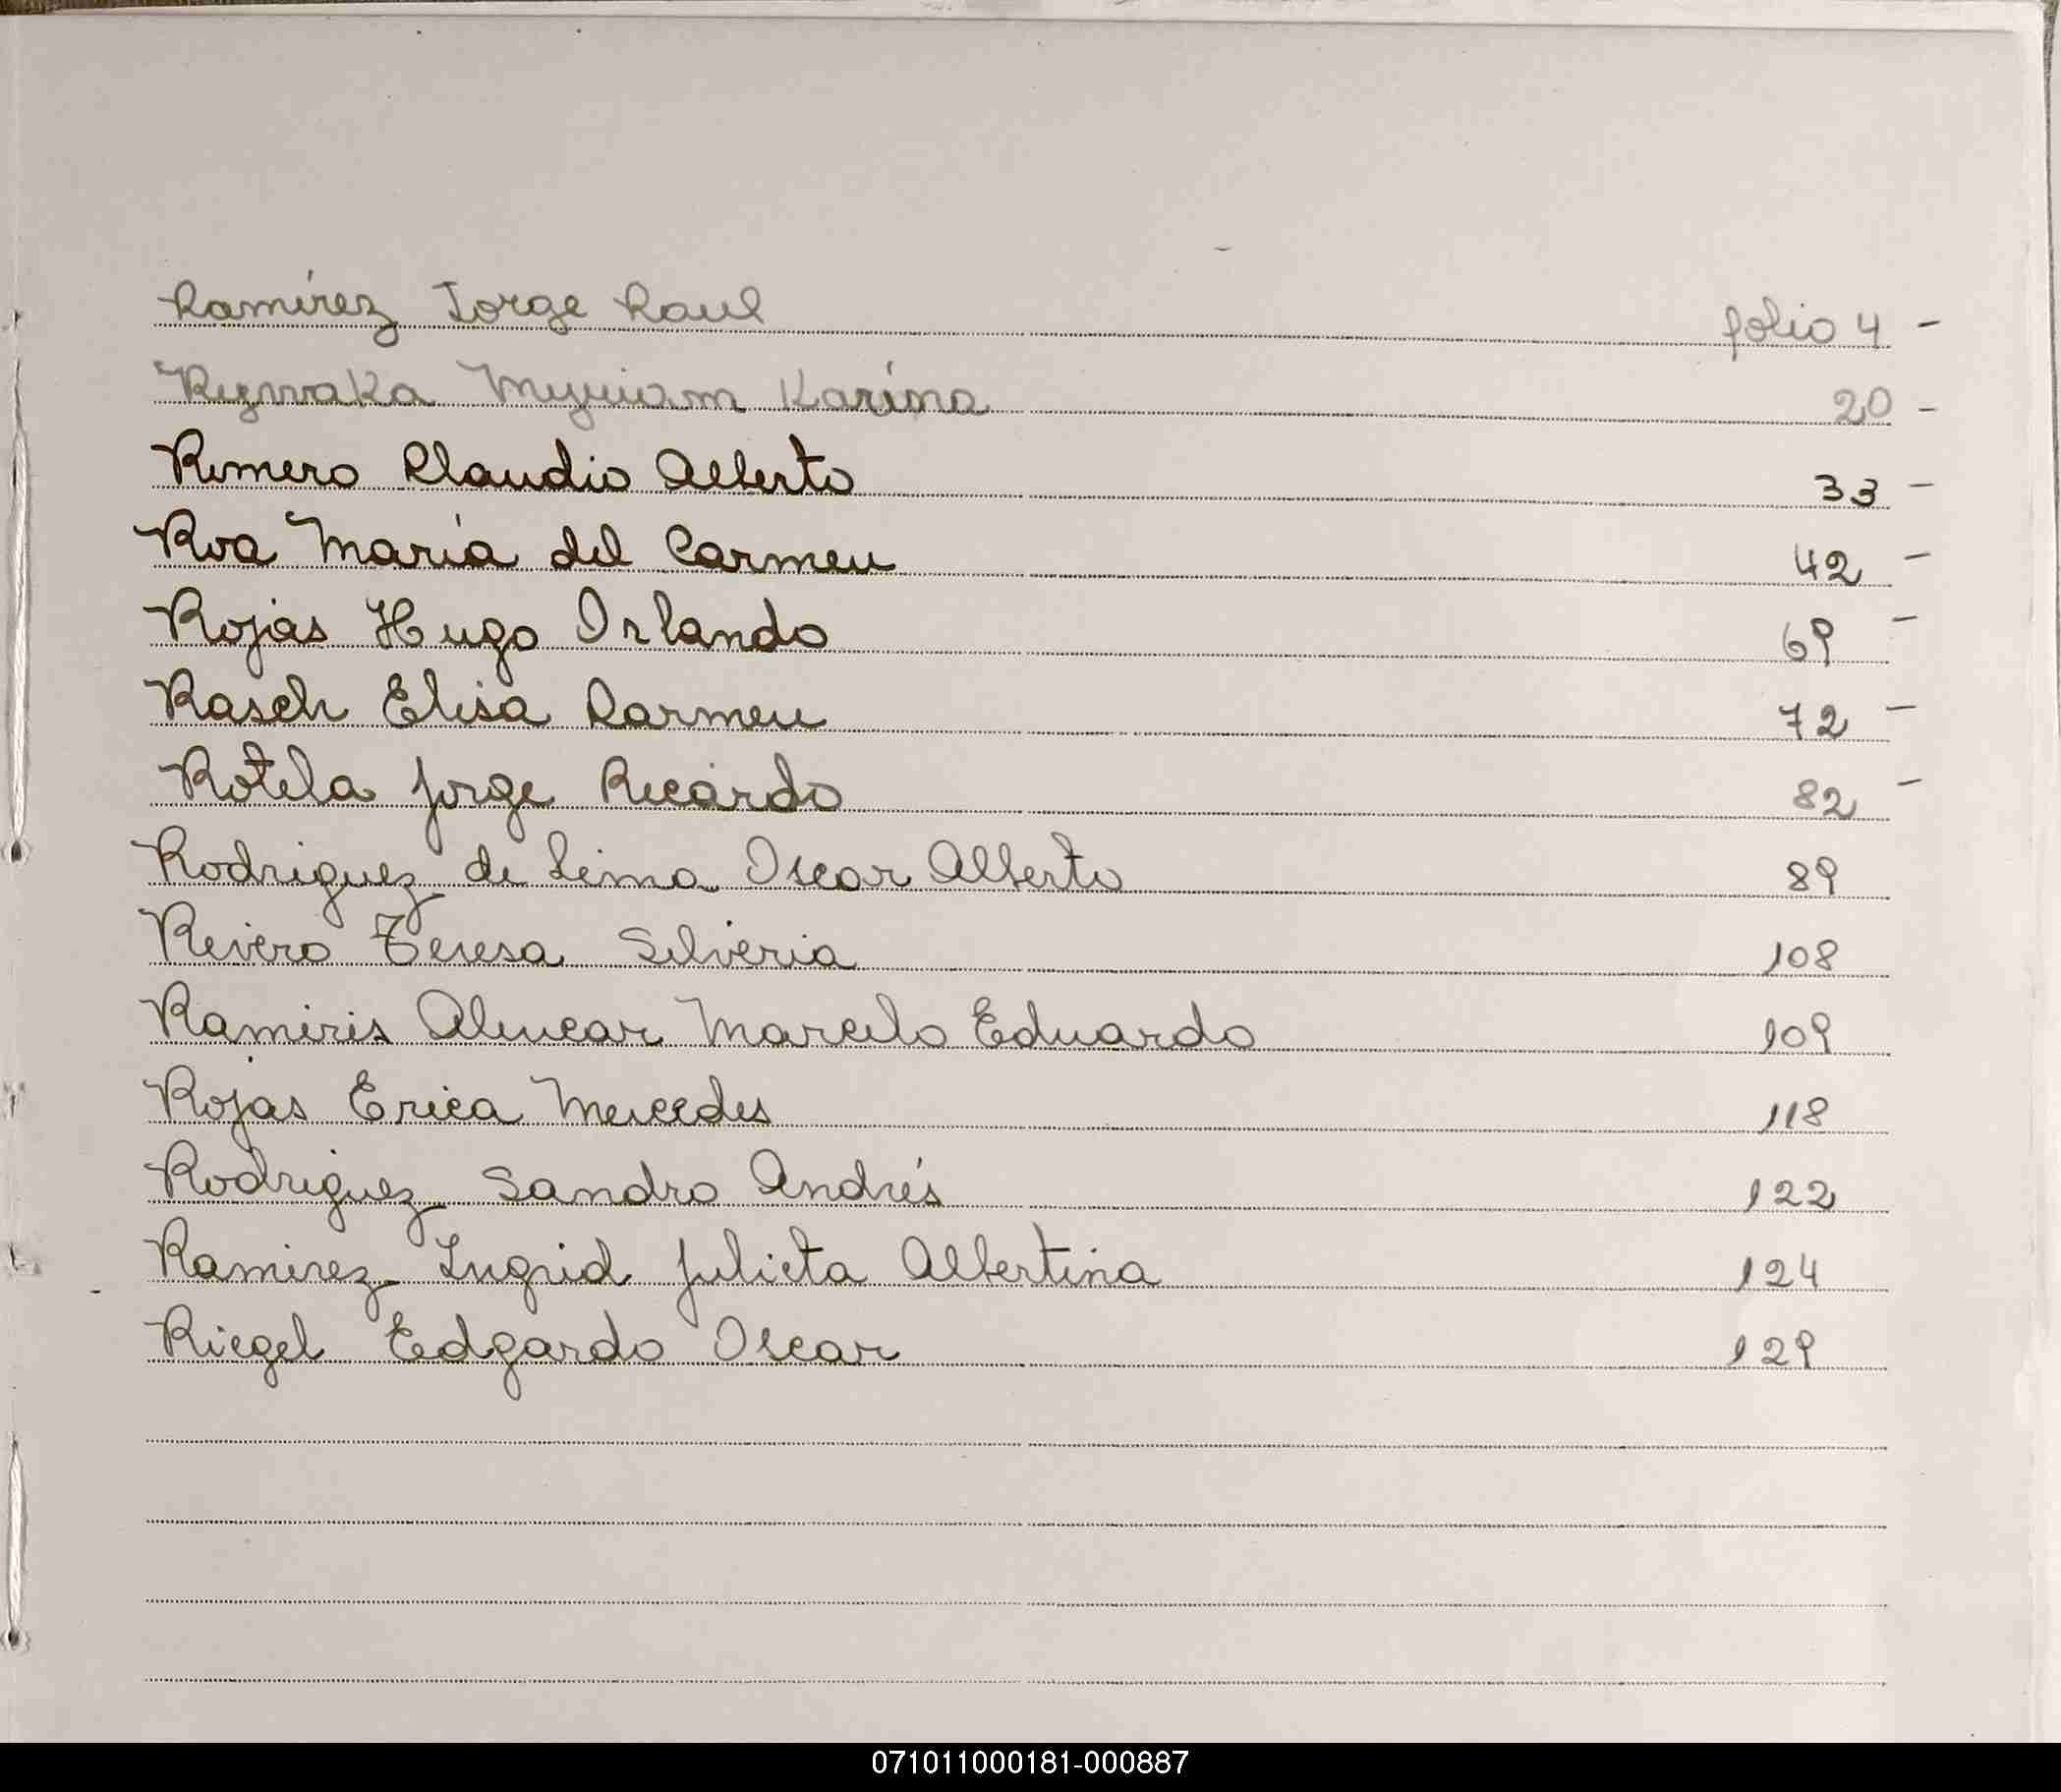 Ramírez Jorge Raul folio 4 -
Myriam Karina 20 -
Romero Claudio Alberto 33 -
Roa María del Carmen 42 -
Rojas Hugo Orlando 69 -
Rasch Elisa Carmen 72 -
Rotela Jorge Ricardo 82 -
Rodriguez de Lima Oscar Alberto 89
Rivero Teresa Silveria 108
Ramiris Alencar Marcelo Eduardo 109
Rojas Erica Mercedes 118
Rodriguez Sandro Andrés 122
Ramirez Ingrid Julieta Albertina 124
Riegel Edgardo Oscar 129
071011000181-000887